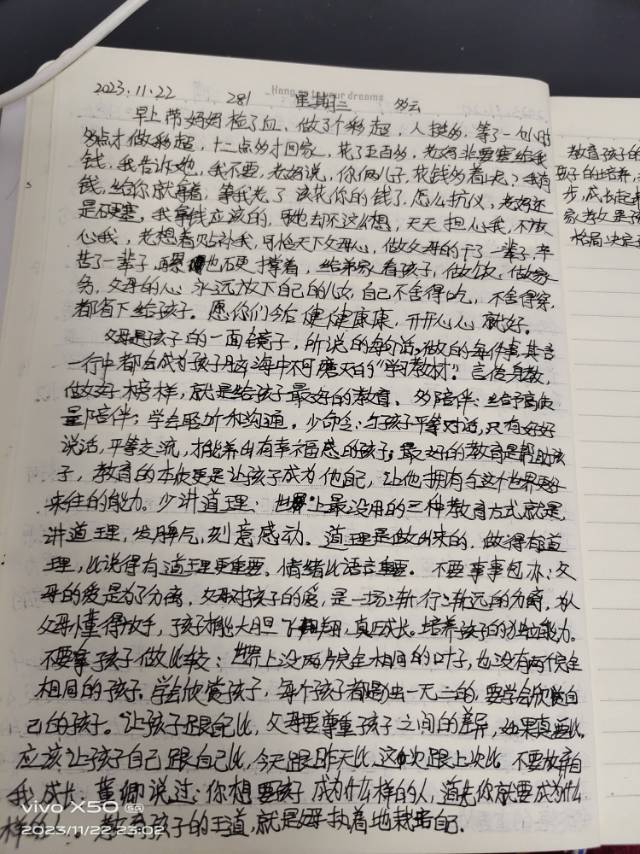 2023.11.22 281 星期三 多云
Hang to your dreams
早上带妈妈检了血、做了个彩超,人挺多,等了一个小时
多点才做彩超,十二点多才回家,花了五百多,老妈非要塞给我
钱,我告诉她,我不要,老妈说,你俩儿子,花钱多着
钱,给你就拿着,等我老了该花你的钱了,怎么抗议,老妈还
是硬塞,我拿钱应该的,可她却不这么想,天天担心我,不放
心我,老想着贴补我,可怜天下父母心,做父母的干了一辈子,辛
苦了一辈子,再累也硬撑着,给弟家看孩子,做饭,做家
务,父母的心永远放下自己的儿女,自己不舍得吃,不舍得穿,
都省下给孩子。愿你们今后健健康康,开开心心就好。
父母是孩子的一面镜子,所说的每句话,做的每件事,其言
一行中都会成为孩子脑海中不可磨灭的“学习教材”。言传身教,
做好榜样,就是给孩子最好的教育。多陪伴:给予高质
量陪伴;学会聆听和沟通。少命令:与孩子平等对话,只有好好
说话,平等交流,才能养出有幸福感的孩子;最好的教育是帮助孩
子,教育的本质更是让孩子成为他自己,让他拥有与这个世界更好
来往的能力。少讲道理:世界上最没用的三种教育方式就是
讲道理,发脾气,刻意感动。道理是做出来的,做得有道
理,比说得有道理更重要,情绪比语言重要。不要事事包办:父
母的爱是为了分离,父母对孩子的爱,是一场渐行渐远的分离,从
父母懂得放手,孩子才能大胆飞翔,真正成长。培养孩子的独立能力。
不要拿孩子做比较:世界上没两片完全相同的叶子,也没有两个完全
相同的孩子。学会欣赏孩子,每个孩子都是独一无二的,要学会欣赏自
己的孩子。让孩子跟自己比,父母要尊重孩子之间的差异,如果真要比,
应该让孩子自己跟自己比,今天跟昨天比,这次跟上次比。不要放弃自
我成长,董卿说过:你想要孩子成为什么样的人,首先你就要成为什么
样的人。教育孩子的王道,就是父母执着地栽培自己。
教育孩子的
孩子的培养,
步,成长起来
家教,果
格局,决定
vivo X50
2023/11/22 23:02